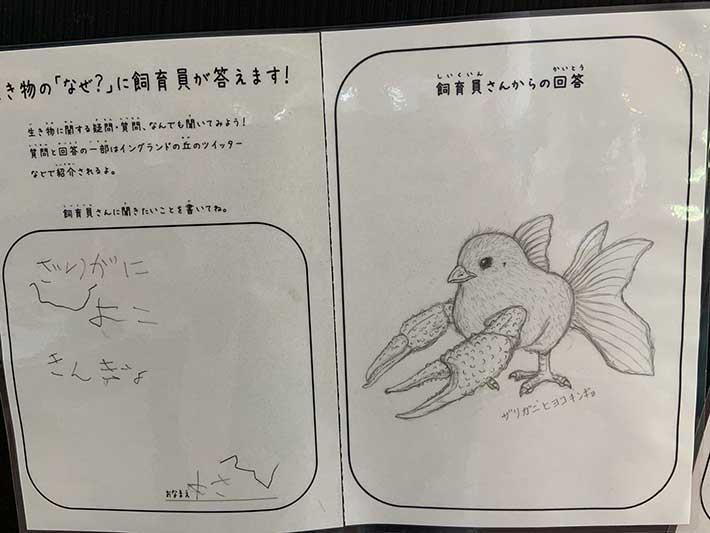 き物の「なぜ？」に飼育員が答えます！
生き物に関する疑問・質問、なんでも聞いてみよう！
質問と回答の一部はイングランドの丘のツイッター
などで紹介されるよ。
飼育員さんに聞きたいことを書いてね。
ざりがに
ひよこ
きんぎょ
おなまえ
しいくいん かいとう
飼育員さんからの回答
ザリガニヒヨコキンギョ